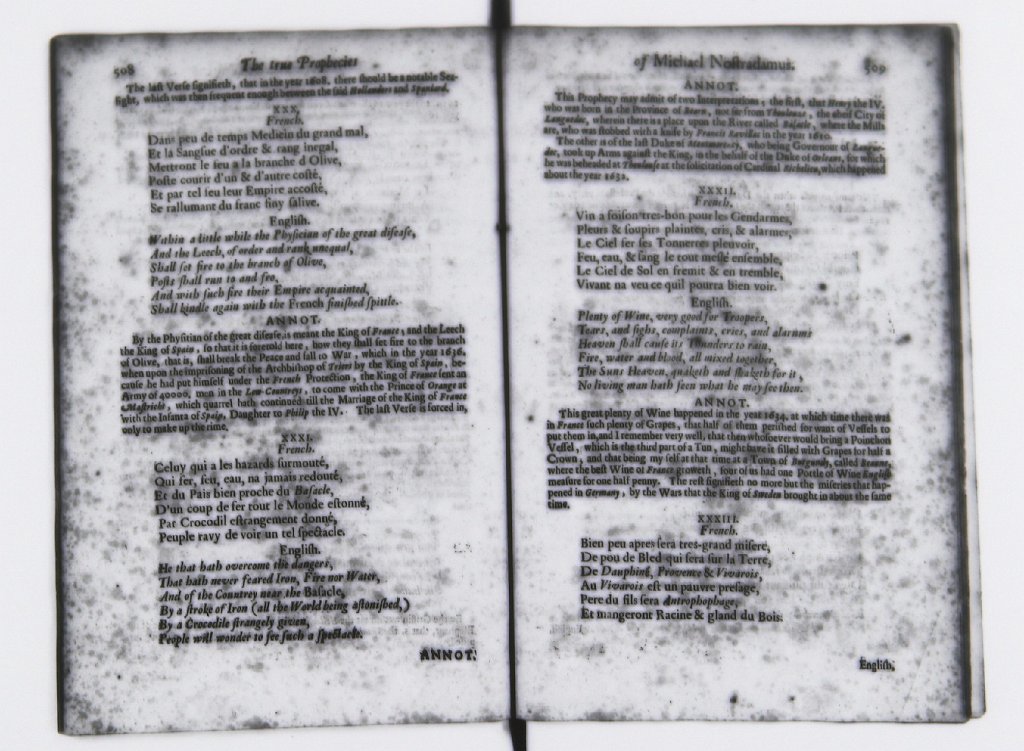 508 The true Prophecies
The last Verse signifieth, that in the year 1608. there should be a notable Sea-
fight, which was then frequent enough between the said Hollanders and Spaniard.
XXX.
French.
Dans peu de temps Medicin du grand mal,
Et la Sangsue d'ordre & rang inegal,
Mettront le feu a la branche d'Olive,
Poste courir d'un & d'autre costé,
Et par tel feu leur Empire accosté,
Se rallumant du franc finy salive.
English.
Within a little while the Physician of the great disease,
And the Leech, of order and rank unequal,
Shall set fire to the branch of Olive,
Posts shall run to and fro,
And with such fire their Empire acquainted,
Shall kindle again with the French finished spittle.
ANNOT.
By the Physitian of the great disease is meant the King of France, and the Leech
the King of Spain, so that it is foretold here, how they shall set fire to the branch
of Olive, that is, shall break the Peace and fall to War, which in the year 1636.
when upon the imprisoning of the Archbishop of Triers by the King of Spain, be-
cause he had put himself under the French Protection, the King of France sent an
Army of 40000. men in the Low-Countreys, to come with the Prince of Orange at
Mastricht, which quarrel hath continued till the Marriage of the King of France
with the Infanta of Spain, Daughter to Philip the IV. The last Verse is forced in,
only to make up the rime.
XXXI.
French.
Celuy qui a les hazards surmonté,
Qui fer, feu, eau, na jamais redouté,
Et du Pais bien proche du Basacle,
D'un coup de fer tout le Monde estonné,
Par Crocodil estrangement donné,
Peuple ravy de voir un tel spectacle.
English.
He that hath overcome the dangers,
That hath never feared Iron, Fire nor Water,
And of the Countrey near the Basacle,
By a stroke of Iron (all the World being astonished,)
By a Crocodile strangely given,
People will wonder to see such a spectacle.
ANNOT.
of Michael Nostradamus. 509
ANNOT.
This Prophecy may admit of two Interpretations, the first, that Henry the IV.
who was born in the Province of Bearn, not far from Thoulouze, the chief City of
Languedoc, wherein there is a place upon the River called Basacle, where the Mills
are, who was stobbed with a knife by Francis Ravillac in the year 1610.
The other is of the last Duke of Montmorency, who being Governour of Langue-
doc, took up Arms against the King, in the behalf of the Duke of Orleans, for which
he was beheaded at Thoulouse at the solicitation of Cardinal Richelieu, which happened
about the year 1632.
XXXII.
French.
Vin a foison tres-bon pour les Gendarmes,
Pleurs & soupirs plaintes, cris, & alarmes,
Le Ciel fer ses Tonnerres pleuvoir,
Feu, eau, & sang le tout meslé ensemble,
Le Ciel de Sol en fremit & en tremble,
Vivant na veu ce quil pourra bien voir.
English.
Plenty of Wine, very good for Troopers,
Tears, and sighs, complaints, cries, and alarums
Heaven shall cause its Thunders to rain,
Fire, water and blood, all mixed together,
The Suns Heaven, quaketh and shaketh for it,
No living man hath seen what he may see then.
ANNOT.
This great plenty of Wine happened in the year 1634. at which time there was
in France such plenty of Grapes, that half of them perished for want of Vessels to
put them in, and I remember very well, that then whosoever would bring a Poinchon
Vessel, which is the third part of a Tun, might have it filled with Grapes for half a
Crown, and that being my self at that time at a Town of Burgundy, called Beaune,
where the best Wine of France groweth, four of us had one Pottle of Wine English
measure for one half penny. The rest signifieth no more but the miseries that hap-
pened in Germany, by the Wars that the King of Sweden brought in about the same
time.
XXXIII.
French.
Bien peu apres sera tres-grand misere,
De pou de Bled qui sera sur la Terre,
De Dauphiné, Provence & Vivarois,
Au Vivarois est un pauvre presage,
Pere du fils sera Antrophophage,
Et mangeront Racine & gland du Bois.
English.